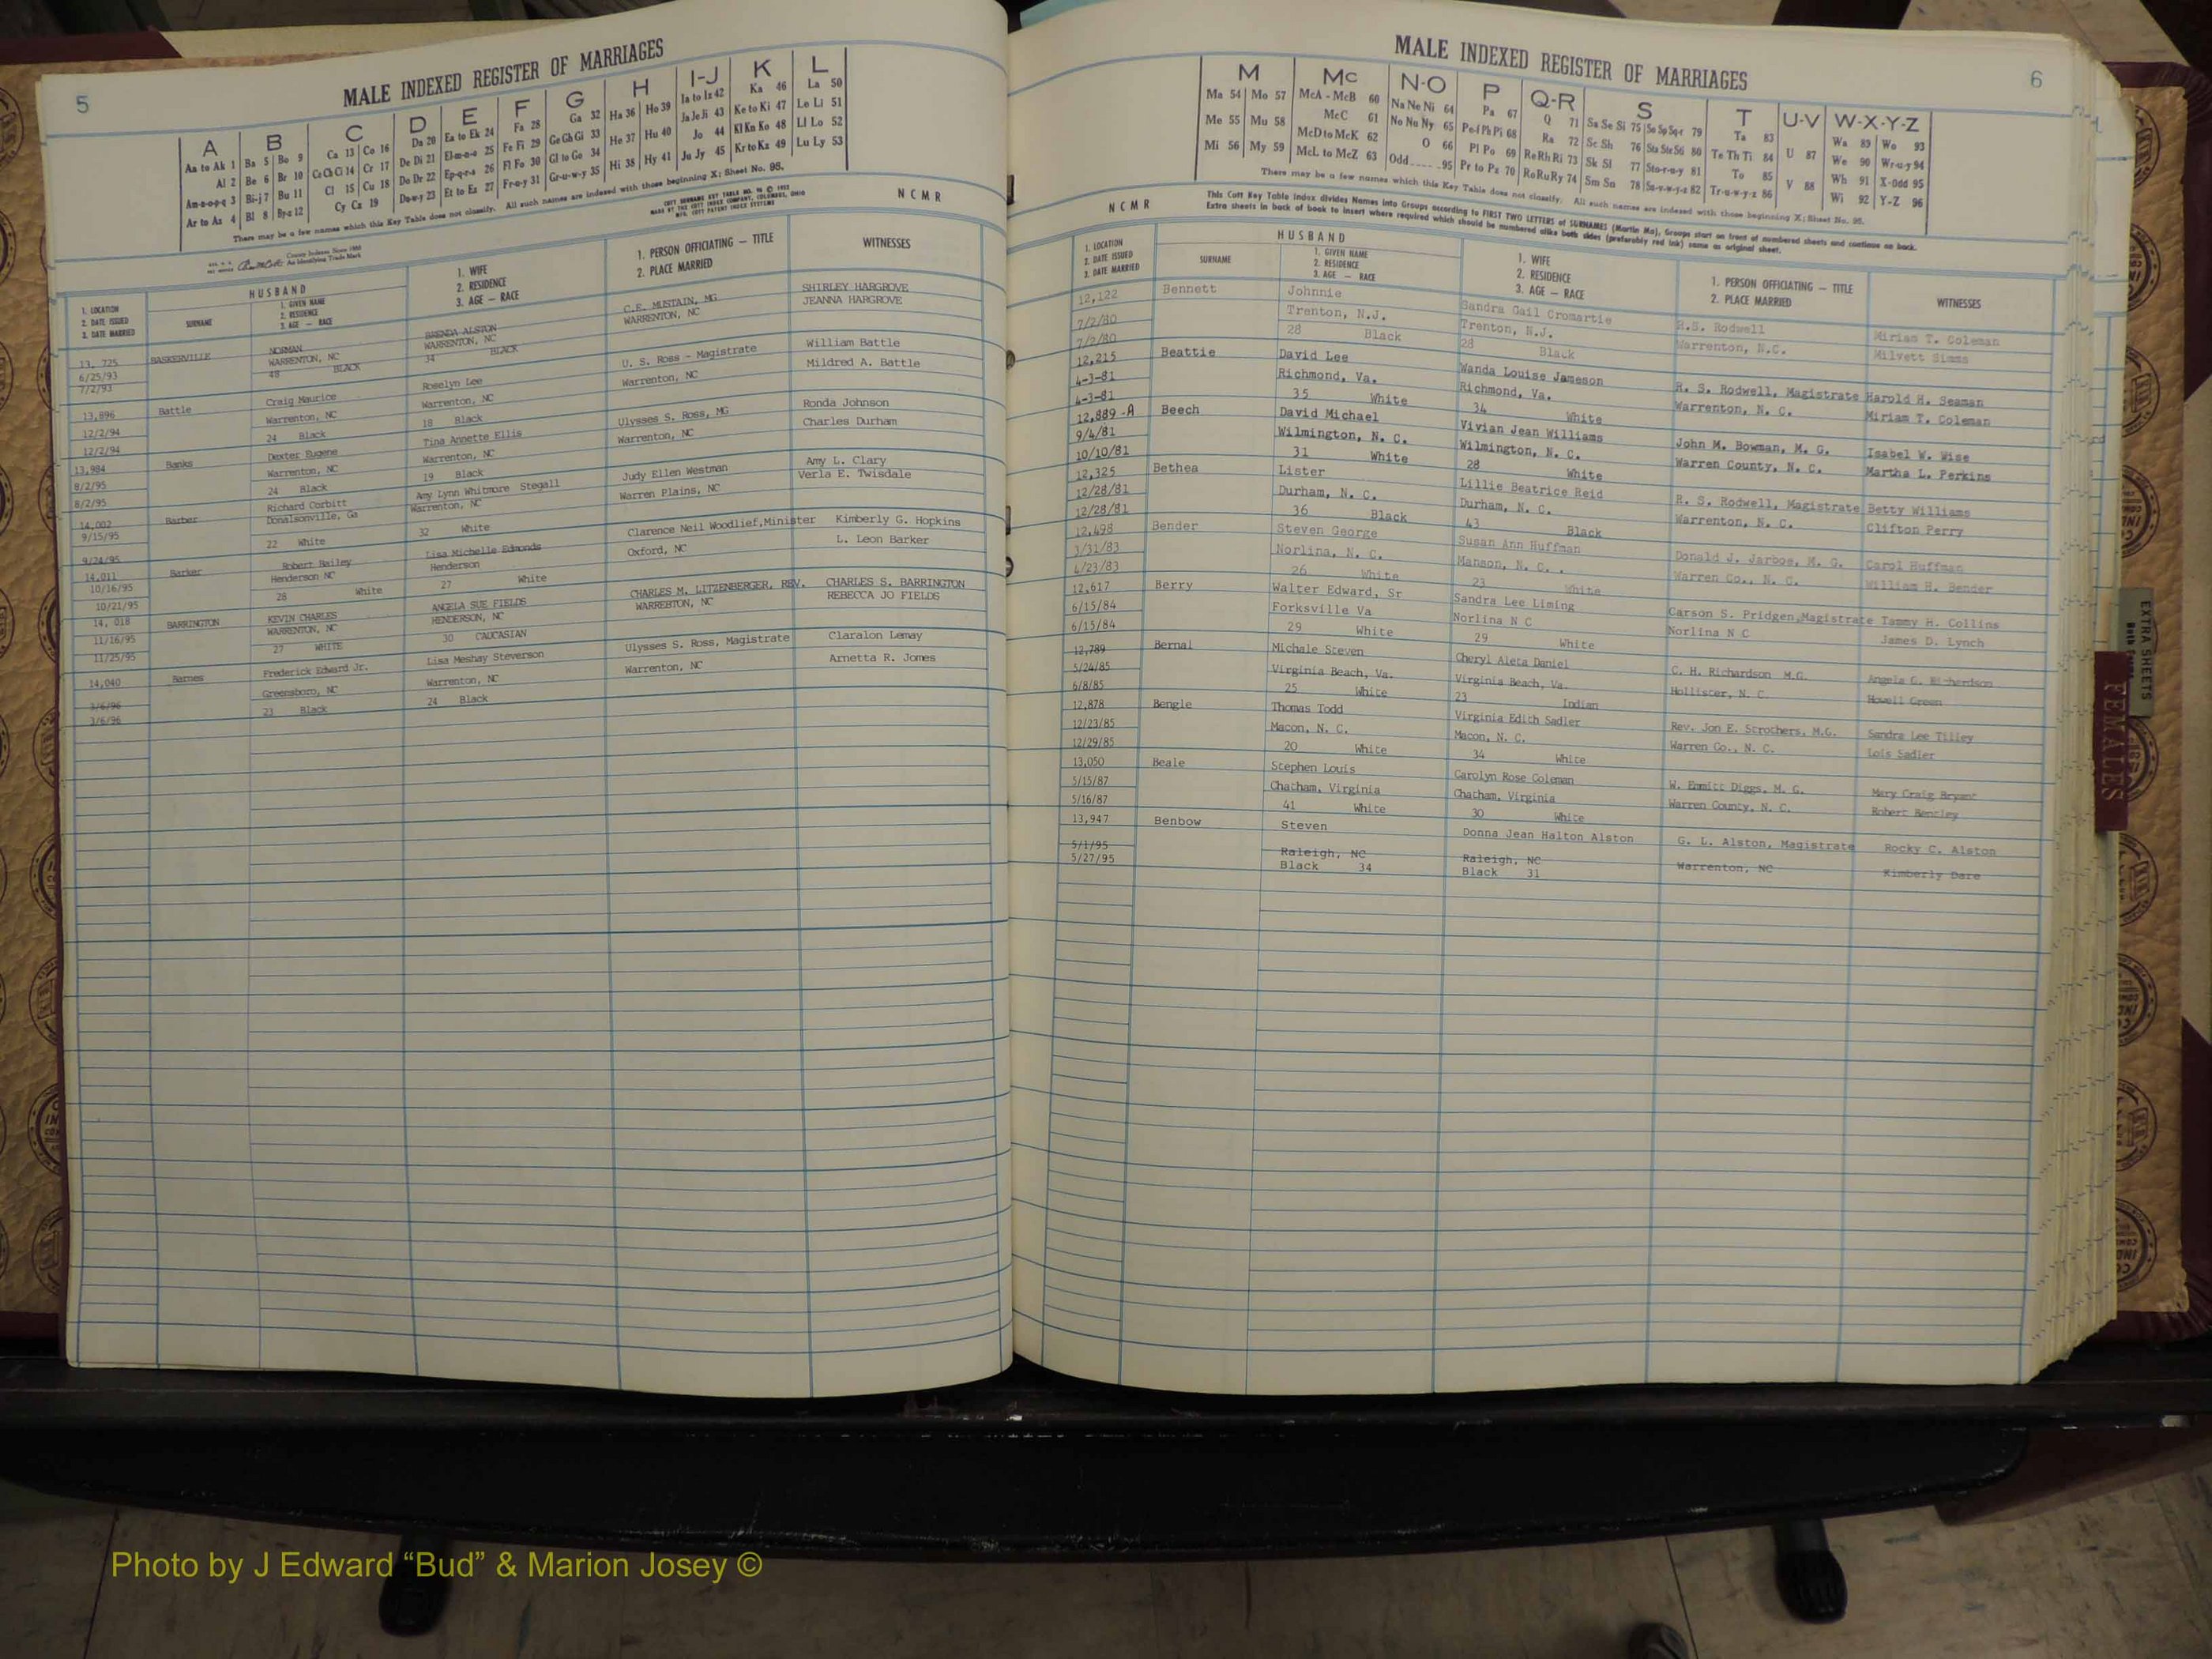 5
MALE INDEXED REGISTER OF MARRIAGES
A B C D E F G H I-J K L
Aa to Ak 1 Ba 5 Bo 9 Ca 13 Co 16 Da 20 Ea to Ek 24 Fa 28 Ga 32 Ha 36 Ho 39 Ia to Iz 42 Ka 46 La 50
Al 2 Be 6 Br 10 Ce Ch Ci 14 Cr 17 De Di 21 El-m-n-o 25 Fe Fi 29 Ge Gh Gi 33 He 37 Hu 40 Ja Je Ji 43 Ke to Ki 47 Le Li 51
Am-n-o-p-q 3 Bi-j 7 Bu 11 Cl 15 Cu 18 Do Dr 22 Ep-q-r-s 26 Fl Fo 30 Gl to Go 34 Hi 38 Hy 41 Jo 44 Kl Kn Ko 48 Ll Lo 52
Ar to Az 4 Bl 8 By-z 12 Cy Cz 19 Du-w-y 23 Et to Ez 27 Fr-u-y 31 Gr-u-w-y 35 Ju Jy 45 Kr to Kz 49 Lu Ly 53
There may be a few names which this Key Table does not classify. All such names are indexed with those beginning X; Sheet No. 95.
County Indexes Since 1888
An Identifying Trade Mark
COTT SURNAME KEY TABLE NO. 96 © 1952
MADE BY THE COTT INDEX COMPANY, COLUMBUS, OHIO
MFG. COTT PATENT INDEX SYSTEMS
NCMR
1. LOCATION
2. DATE ISSUED
3. DATE MARRIED
HUSBAND
SURNAME
1. GIVEN NAME
2. RESIDENCE
3. AGE — RACE
1. WIFE
2. RESIDENCE
3. AGE — RACE
1. PERSON OFFICIATING — TITLE
2. PLACE MARRIED
WITNESSES
13, 725 BASKERVILLE NORMAN BRENDA ALSTON C.E. MUSTAIN, MG SHIRLEY HARGROVE
6/25/93 WARRENTON, NC WARRENTON, NC WARRENTON, NC JEANNA HARGROVE
7/2/93 48 BLACK 34 BLACK
13,896 Battle Craig Maurice Roselyn Lee U. S. Ross - Magistrate William Battle
12/2/94 Warrenton, NC Warrenton, NC Warrenton, NC Mildred A. Battle
12/2/94 24 Black 18 Black
13,984 Banks Dexter Eugene Tina Annette Ellis Ulysses S. Ross, MG Ronda Johnson
8/2/95 Warrenton, NC Warrenton, NC Warrenton, NC Charles Durham
8/2/95 24 Black 19 Black
14,002 Barber Richard Corbitt Amy Lynn Whitmore Stegall Judy Ellen Westman Amy L. Clary
9/15/95 Donalsonville, Ga Warrenton, NC Warren Plains, NC Verla E. Twisdale
9/24/95 22 White 32 White
14,011 Barker Robert Bailey Lisa Michelle Edmonds Clarence Neil Woodlief,Minister Kimberly G. Hopkins
10/16/95 Henderson NC Henderson Oxford, NC L. Leon Barker
10/21/95 28 White 27 White
14, 018 BARRINGTON KEVIN CHARLES ANGELA SUE FIELDS CHARLES M. LITZENBERGER, REV. CHARLES S. BARRINGTON
11/16/95 WARRENTON, NC HENDERSON, NC WARREBTON, NC REBECCA JO FIELDS
11/25/95 27 WHITE 30 CAUCASIAN
14,040 Barnes Frederick Edward Jr. Lisa Meshay Steverson Ulysses S. Ross, Magistrate Claralon Lemay
3/6/96 Greensboro, NC Warrenton, NC Warrenton, NC Arnetta R. Jomes
3/6/96 23 Black 24 Black
6
MALE INDEXED REGISTER OF MARRIAGES
M Mc N-O P Q-R S T U-V W-X-Y-Z
Ma 54 Mo 57 McA - McB 60 Na Ne Ni 64 Pa 67 Q 71 Sa Se Si 75 So Sp Sq-r 79 Ta 83 U 87 Wa 89 Wo 93
Me 55 Mu 58 McC 61 No Nu Ny 65 Pe-f Ph Pi 68 Ra 72 Sc Sh 76 Sta Ste Sti 80 Te Th Ti 84 V 88 We 90 Wr-u-y 94
Mi 56 My 59 McD to McK 62 O 66 Pl Po 69 Re Rh Ri 73 Sk Sl 77 Sto-r-u-y 81 To 85 Wh 91 X-Odd 95
McL to McZ 63 Odd 95 Pr to Pz 70 Ro Ru Ry 74 Sm Sn 78 Su-v-w-y-z 82 Tr-u-w-y-z 86 Wi 92 Y-Z 96
There may be a few names which this Key Table does not classify. All such names are indexed with those beginning X; Sheet No. 95.
NCMR
This Cott Key Table Index divides Names into Groups according to FIRST TWO LETTERS of SURNAMES (Martin Ma), Groups start on front of numbered sheets and continue on back.
Extra sheets in back of book to insert where required which should be numbered alike both sides (preferably red ink) same as original sheet.
1. LOCATION
2. DATE ISSUED
3. DATE MARRIED
HUSBAND
SURNAME
1. GIVEN NAME
2. RESIDENCE
3. AGE — RACE
1. WIFE
2. RESIDENCE
3. AGE — RACE
1. PERSON OFFICIATING — TITLE
2. PLACE MARRIED
WITNESSES
12,122 Bennett Johnnie Sandra Gail Cromartie R.S. Rodwell Miriam T. Coleman
7/2/80 Trenton, N.J. Trenton, N.J. Warrenton, N.C. Milvett Simms
7/2/80 28 Black 28 Black
12,215 Beattie David Lee Wanda Louise Jameson R. S. Rodwell, Magistrate Harold H. Seaman
4-3-81 Richmond, Va. Richmond, Va. Warrenton, N. C. Miriam T. Coleman
4-3-81 35 White 34 White
12,889-A Beech David Michael Vivian Jean Williams John M. Bowman, M. G. Isabel W. Wise
9/4/81 Wilmington, N. C. Wilmington, N. C. Warren County, N. C. Martha L. Perkins
10/10/81 31 White 28 White
12,325 Bethea Lister Lillie Beatrice Reid R. S. Rodwell, Magistrate Betty Williams
12/28/81 Durham, N. C. Durham, N. C. Warrenton, N. C. Clifton Perry
12/28/81 36 Black 43 Black
12,498 Bender Steven George Susan Ann Huffman Donald J. Jarbos, M. G. Carol Huffman
3/31/83 Norlina, N. C. Manson, N. C. . Warren Co., N. C. William H. Bender
4/23/83 26 White 23 White
12,617 Berry Walter Edward, Sr Sandra Lee Liming Carson S. Pridgen,Magistrate Tammy H. Collins
6/15/84 Forksville Va Norlina N C Norlina N C James D. Lynch
6/15/84 29 White 29 White
12,789 Bernal Michale Steven Cheryl Aleta Daniel C. H. Richardson M.G. Angela G. Richardson
5/24/85 Virginia Beach, Va. Virginia Beach, Va. Hollister, N. C. Howell Green
6/8/85 25 White 23 Indian
12,878 Bengle Thomas Todd Virginia Edith Sadler Rev. Jon E. Strochers, M.G. Sandra Lee Tilley
12/23/85 Macon, N. C. Macon, N. C. Warren Co., N. C. Lois Sadler
12/29/85 20 White 34 White
13,050 Beale Stephen Louis Carolyn Rose Coleman W. Emmitt Diggs, M. G. Mary Craig Bryant
5/15/87 Chatham, Virginia Chatham, Virginia Warren County, N. C. Robert Bentley
5/16/87 41 White 30 White
13,947 Benbow Steven Donna Jean Halton Alston G. L. Alston, Magistrate Rocky C. Alston
5/1/95 Raleigh, NC Raleigh, NC Warrenton, NC Kimberly Dare
5/27/95 Black 34 Black 31
EXTRA SHEETS
FEMALES
Photo by J Edward “Bud” & Marion Josey ©